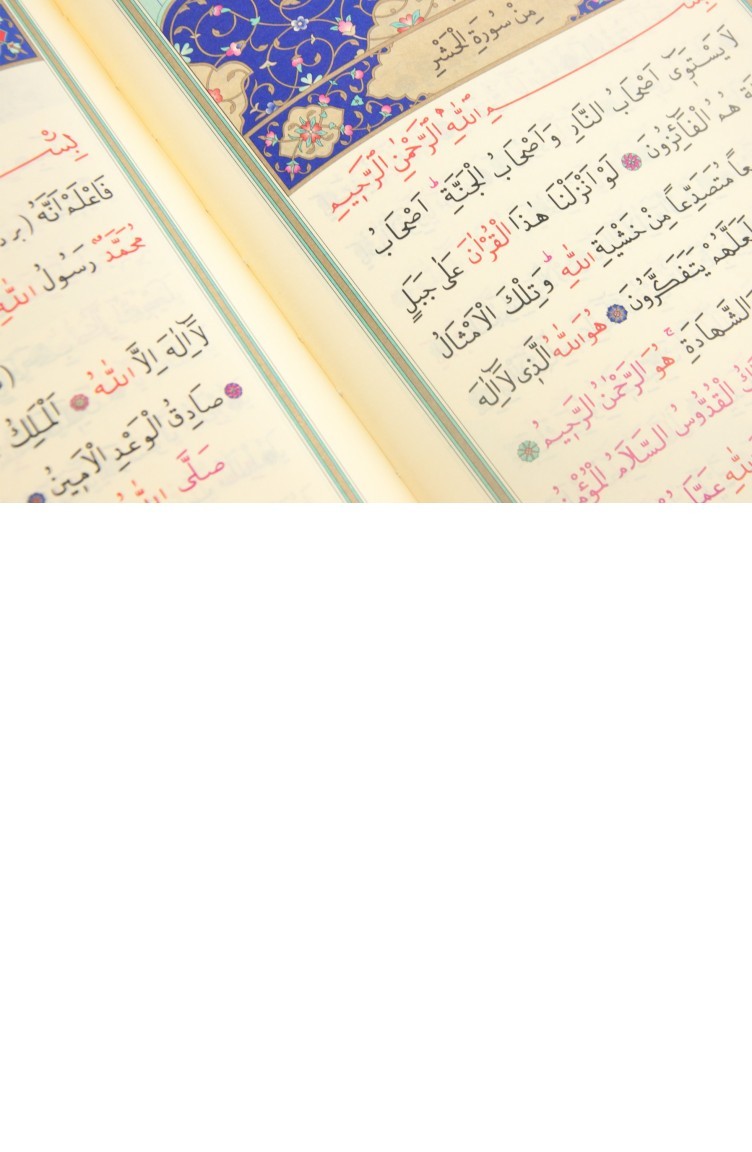 مِنْ سُورَةِ الْحَشْرِ
بِسْـــمِ اللّٰهِ الرَّحْمٰنِ الرَّحِيمِ
لَا يَسْتَوِىٓ اَصْحَابُ النَّارِ وَاَصْحَابُ الْجَنَّةِ ط اَصْحَابُ
هُمُ الْفَٓائِزُونَ لَوْ اَنْزَلْنَا هٰذَا الْقُرْاٰنَ عَلٰى جَبَلٍ
مُتَصَدِّعاً مِنْ خَشْيَةِ اللّٰهِ ط وَتِلْكَ الْاَمْثَالُ
يَتَفَكَّرُونَ هُوَ اللّٰهُ الَّذٖى لَٓا اِلٰهَ
الشَّهَادَةِ ج هُوَ الرَّحْمٰنُ الرَّحٖيمُ
الْقُدُّوسُ السَّلَامُ الْمُؤْمِنُ
اللّٰهِ عَمَّا
بِسْـــ
فَاعْلَمْ اَنَّهُ
مُحَمَّدٌ رَسُولُ اللّٰهِ
لَٓا اِلٰهَ اِلَّا اللّٰهُ اَلْمَلِكُ
صَادِقُ الْوَعْدِ الْاَمٖينُ
صَلَّى اللّٰهُ